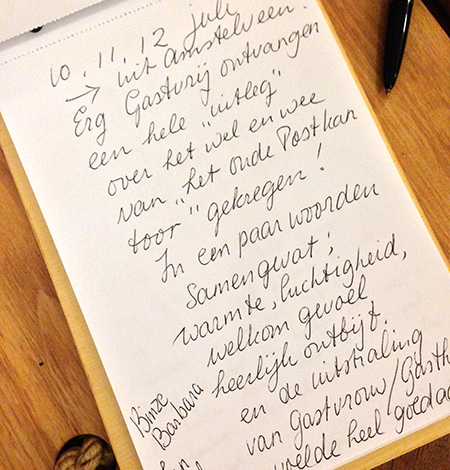 10, 11, 12 juli
→ uit Amstelveen.
Erg Gastvrij ontvangen
een hele "uitleg"
over het wel en wee
van "het oude Postkan
toor" gekregen!
In een paar woorden
samengevat;
warmte, luchtigheid,
welkom gevoel
heerlijk ontbijt
en de uitstraling
van Gastvrouw/Gasth
voelde heel goed
Barbara